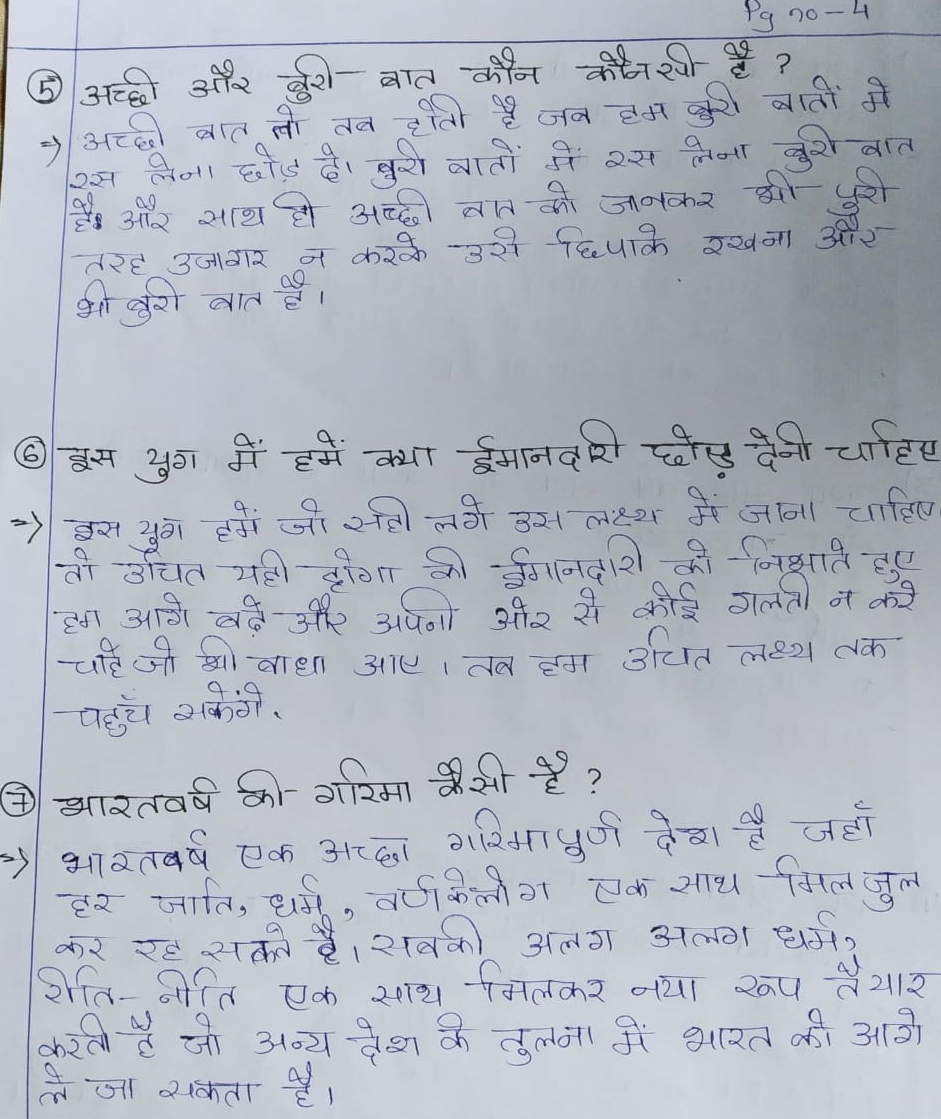 Pg no-4
⑤ अच्छी और बुरी बात कौन कौनसी है ?
=> अच्छी बात तो तब होती है जब हम बुरी बातों मे
रस लेना छोड़ दे। बुरी बातों में रस लेना बुरी बात
है। और साथ ही अच्छी बात को जानकर भी पुरी
तरह उजागर न करके उसे छिपाके रखना और
भी बुरी बात है।
⑥ इस युग में हमें क्या ईमानदारी छोड़ देनी चाहिए
=> इस युग हमें जो सही लगे उस लक्ष्य में जाना चाहिए।
तो उचित यही होगा की ईमानदारी को निभाते हुए
हम आगे बढ़े और अपनी ओर से कोई गलती न करे
चाहे जो भी बाधा आए। तब हम उचित लक्ष्य तक
पहुँच सकेंगे.
⑦ भारतवर्ष की गरिमा कैसी है ?
=> भारतवर्ष एक अच्छा गरिमापुर्ण देश है जहाँ
हर जाति, धर्म, वर्णकेलोग एक साथ मिल जुल
कर रह सकते है। सबकी अलग अलग धर्म,
रीति-नीति एक साथ मिलकर नया रूप तैयार
करती है जो अन्य देश के तुलना में भारत को आगे
ले जा सकता है।